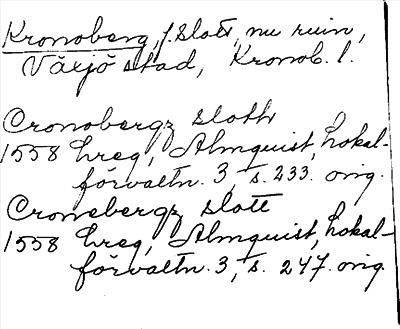 Kronoberg, f. slott, nu ruin,
Växjö stad, Kronob. l.
Cronobergz sloth
1558 hreg, Almquist, Lokal-
förvaltn. 3, s. 233. orig.
Cronebergz slott
1558 hreg, Almquist, Lokal-
förvaltn. 3, s. 247. orig.